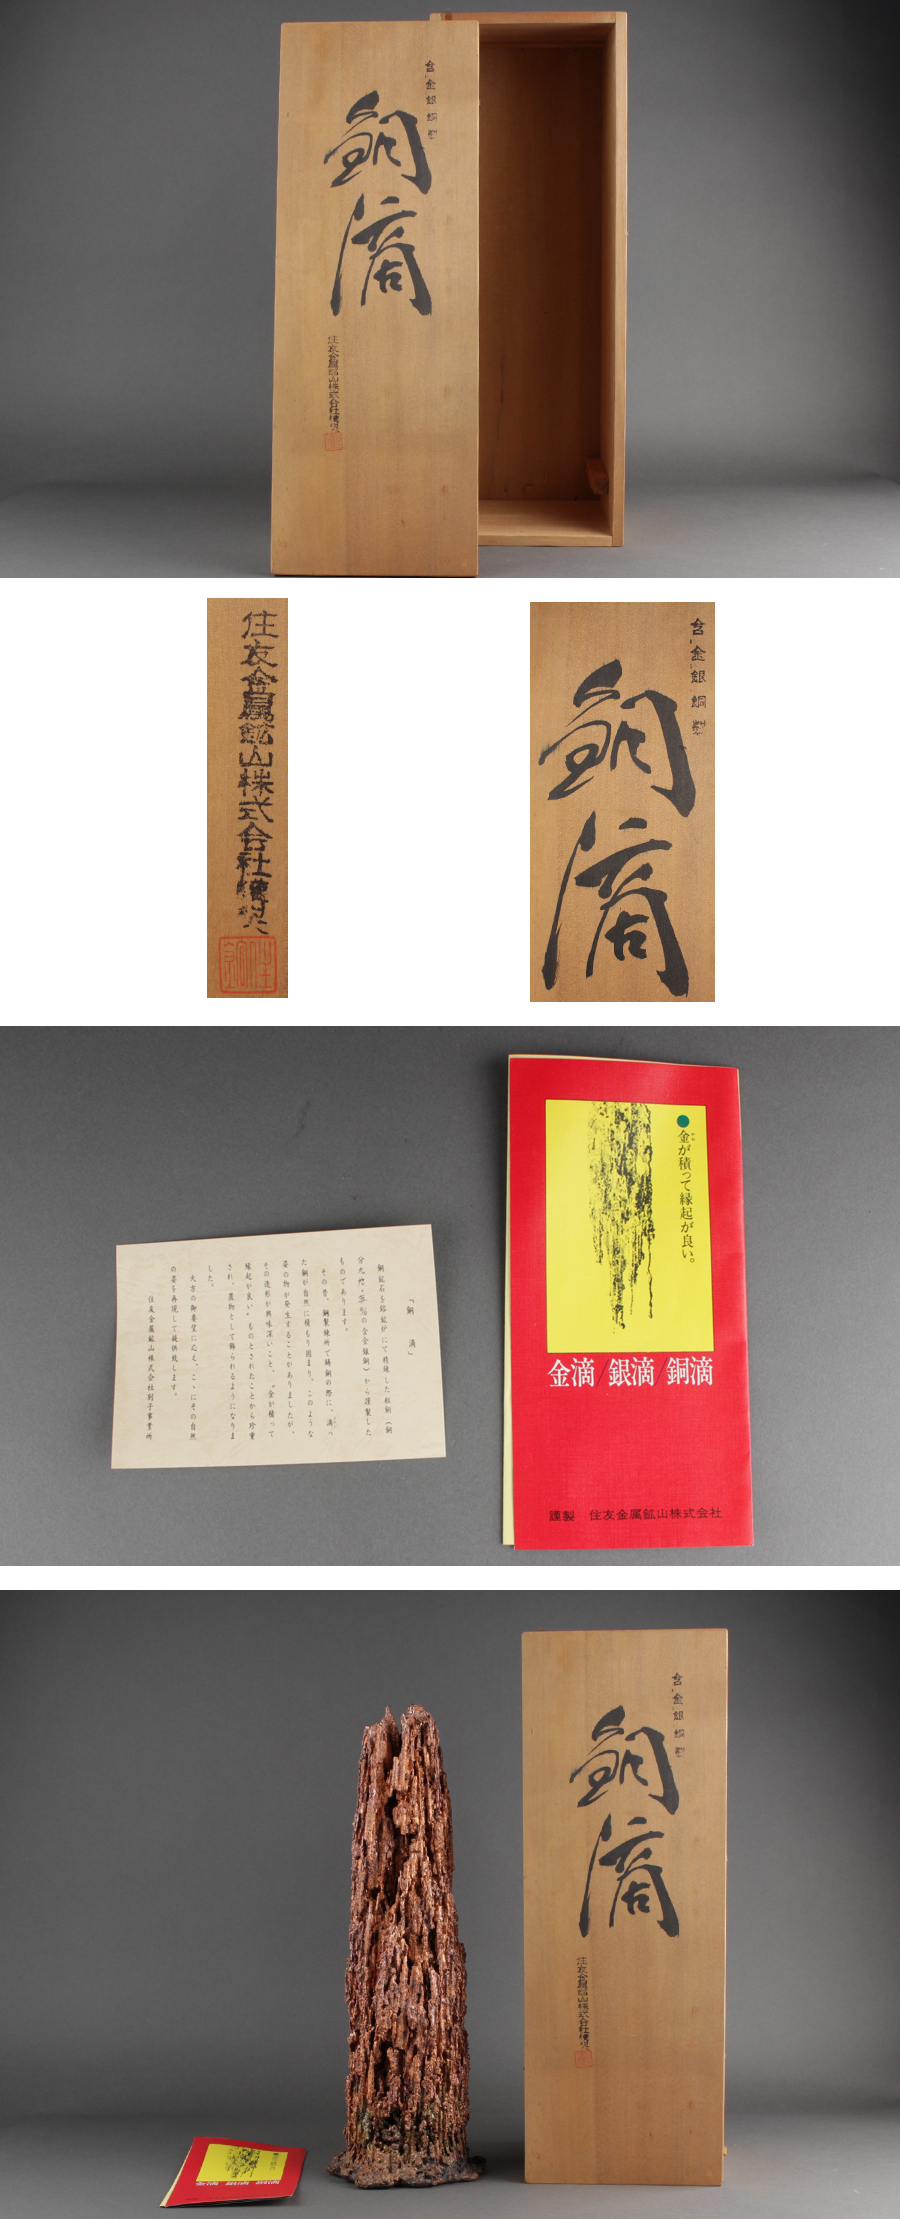 含金銀銅製
銅滴
住友金属鉱山株式会社
住友金属鉱山株式会社
含金銀銅製
銅滴
「銅滴」
銅鉱石を鎔鉱炉にて精練した粗銅（銅
の含金銀銅）から謹製した
ものであります。
その昔、銅製錬所で鋳銅の際に、滴っ
た銅が自然に積もり固まり、このような
姿の物が発生することがありましたが、
その造形が興味深いこと、“金が積って
縁起が良い”ものとされたことから珍重
され、置物として飾られるようになりま
した。
大方の御要望に応え、こゝにその自然
の姿を再現して提供致します。
住友金属鉱山株式会社別子事業所
●金が積って縁起が良い。
金滴/銀滴/銅滴
謹製　住友金属鉱山株式会社
含金銀銅製
銅滴
住友金属鉱山株式会社
金滴 銀滴 銅滴